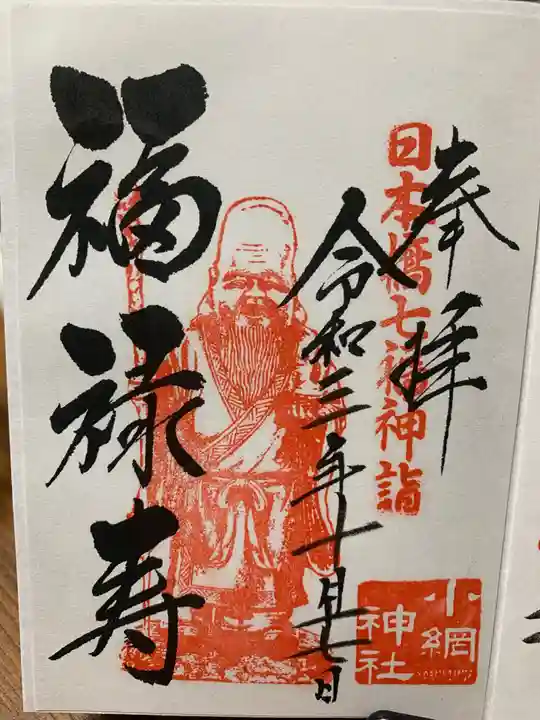 奉拝
日本橋七福神詣
令和三年十月七日
福禄寿
小網
神社